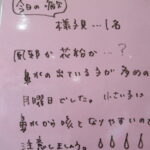 今日の病欠
様子見…1名
風邪か花粉か…?
鼻水の出ている子が多めの
月曜日でした。小さい子は
鼻水から咳となりやすいので
注意しましょう。